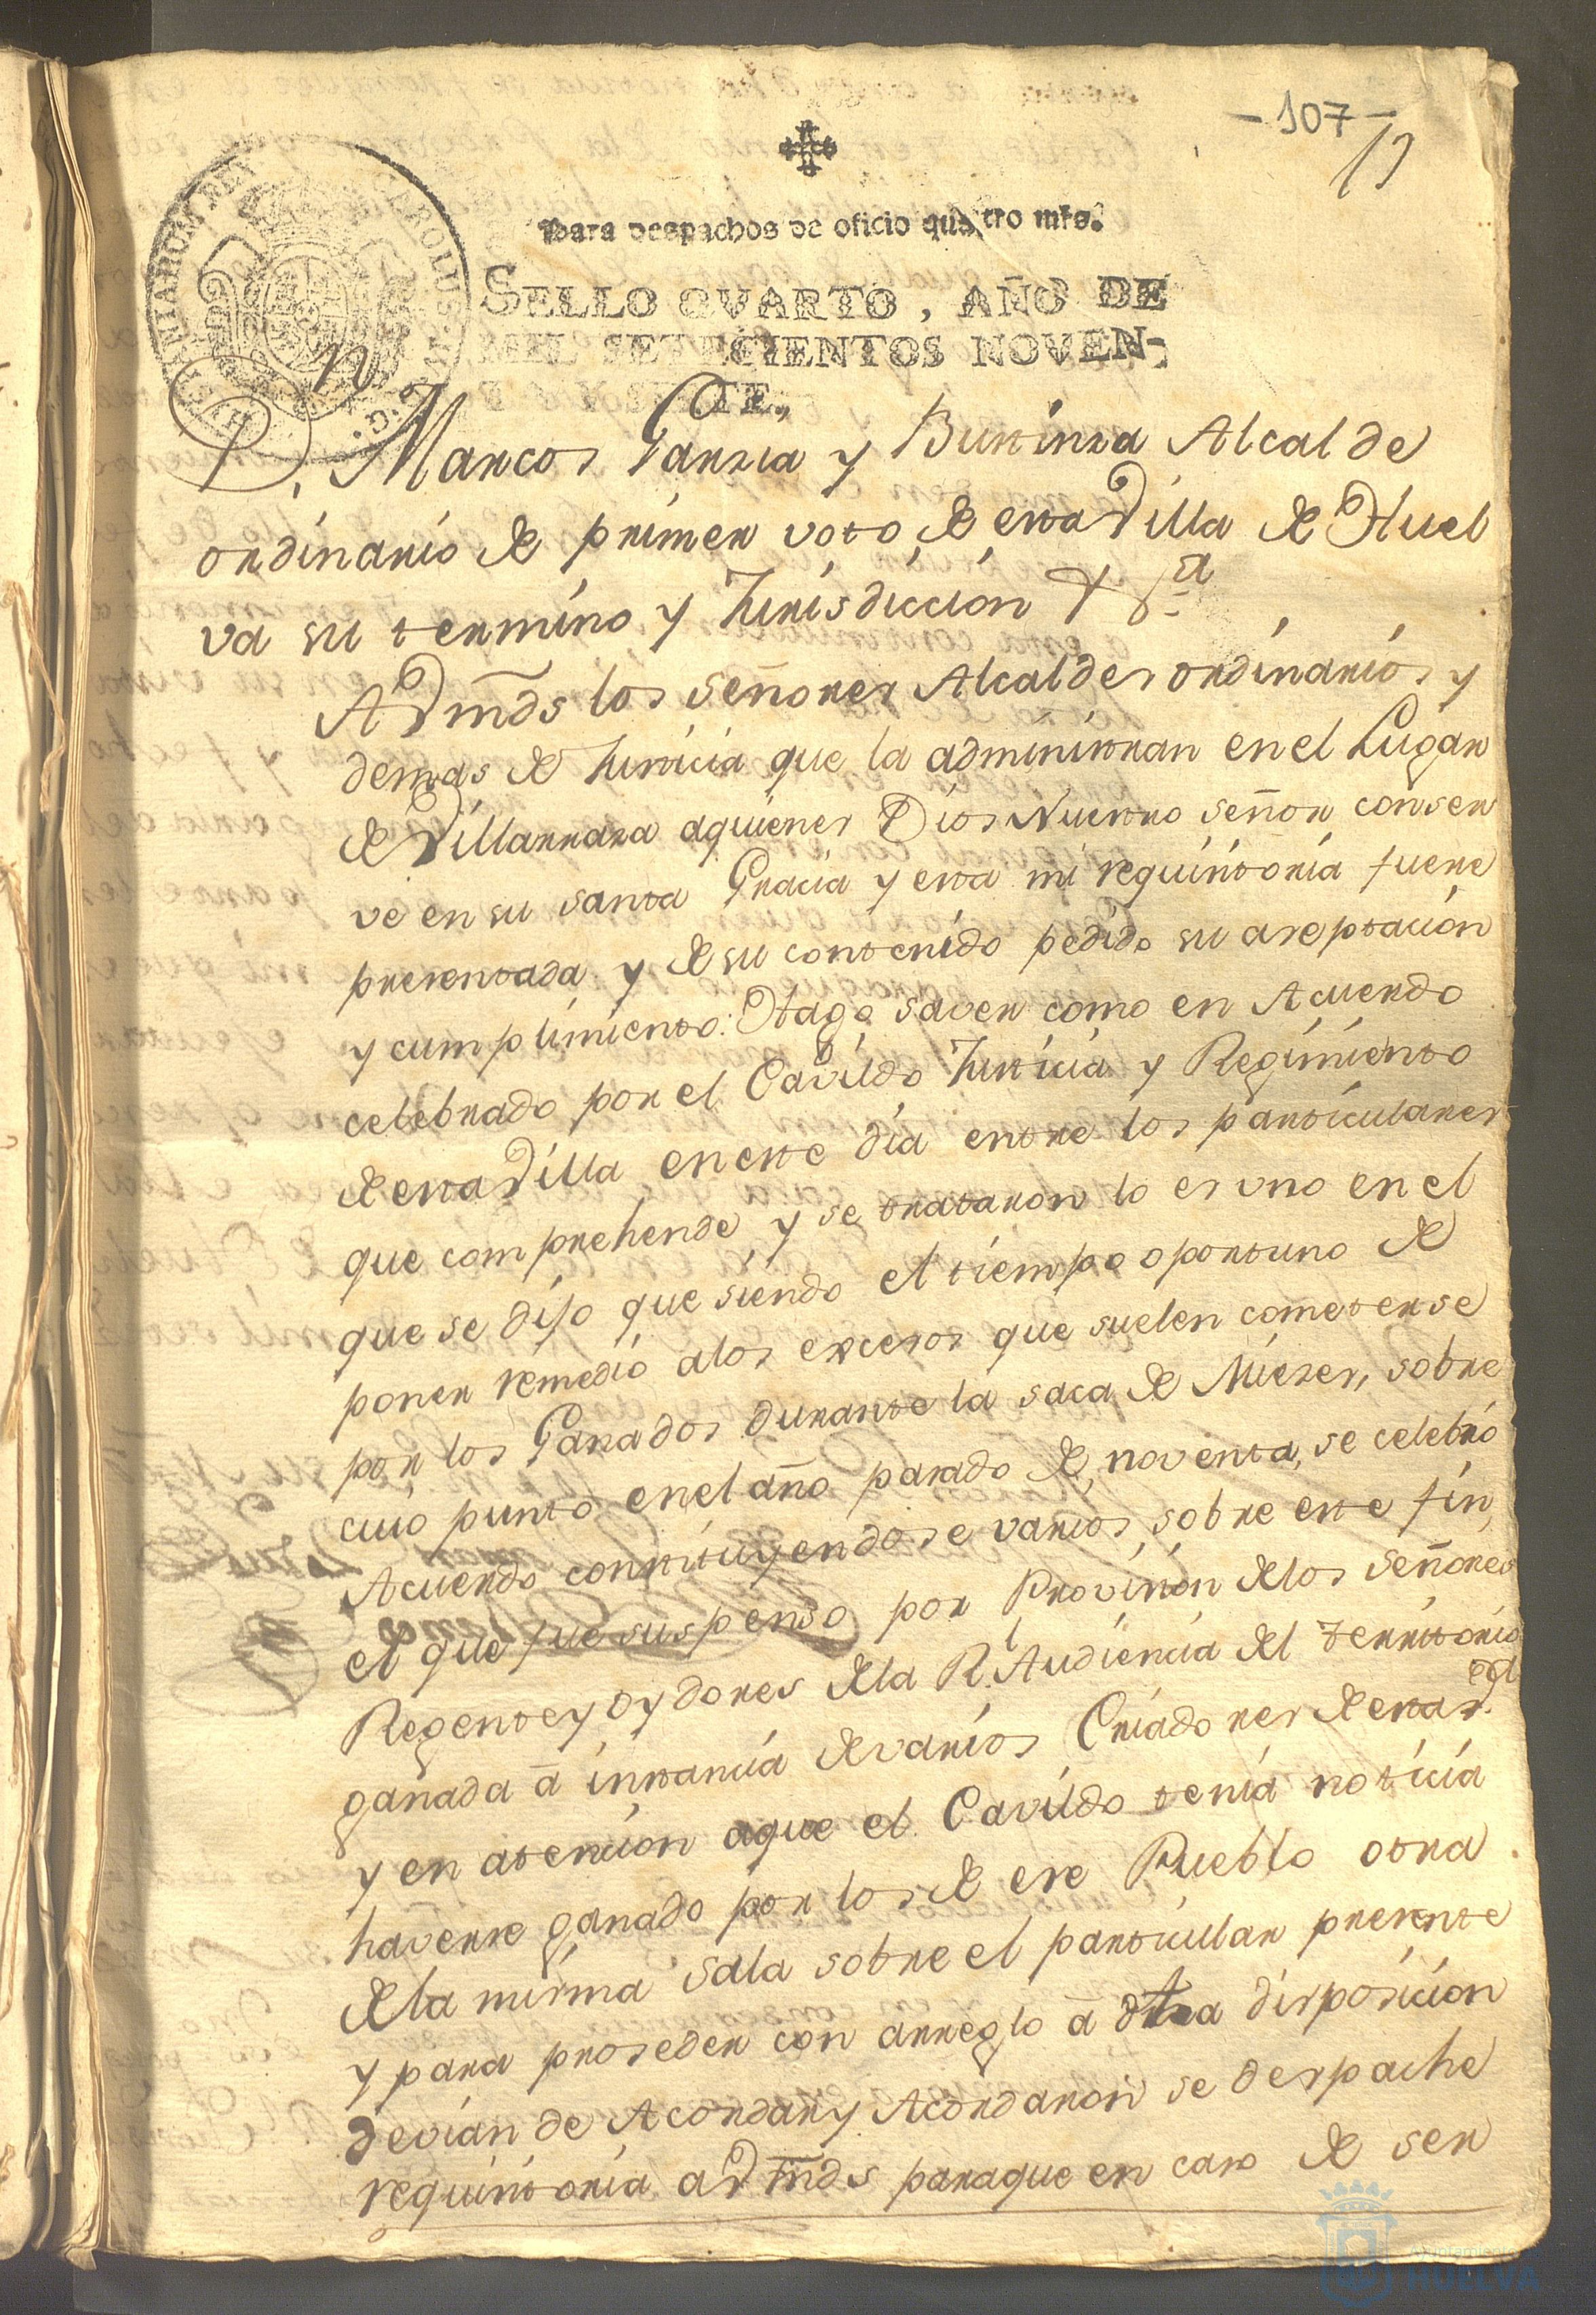 - 107 -
Para despachos de oficio quatro mrs.
SELLO QVARTO, AÑO DE
MIL SETECIENTOS NOVEN-
TA Y SIETE.
CAROLUS
HISPANIAROM REX
Dn. Marcos Garzia y Alcalde
ordinario de primer voto de esta Villa de Huel
va su termino y Jurisdiccion &a
A Vmds los señores Alcaldes ordinarios y
demas de Justicia que la administran en el Lugar
de Villarrasa aquienes Dios Nuestro señor conser
ve en su santa Gracia y esta mi requisitoria fuere
presentada y de su contenido pedido su aseptacion
y cumplimiento: Hago saver como en Acuerdo
celebrado por el Cavildo Justicia y Regimiento
de esta Villa en este dia entre los particulares
que comprehende y se trataron lo es uno en el
que se dijo que siendo el tiempo oportuno de
poner remedio alos excesos que suelen cometerse
por los Ganados durante la saca de Mieses, sobre
cuio punto enel año pasado de noventa, se celebró
Acuerdo constituyendose varios sobre este fin,
el que fue suspenso por Provision delos Señores
Regente y Oydores dela Rl. Audiencia del territorio
ganada á instancia de varios Criadores de esta Vd.
y en atencion aque el Cavildo tenia noticia
haverse ganado por los de ese Pueblo otra
dela misma sala sobre el particular presente
y para proseder con arreglo á dha disposicion
devian de Acordar y Acordaron se despache
requisitoria a Vmds paraque en caso de ser
Ayuntamiento
HUELVA